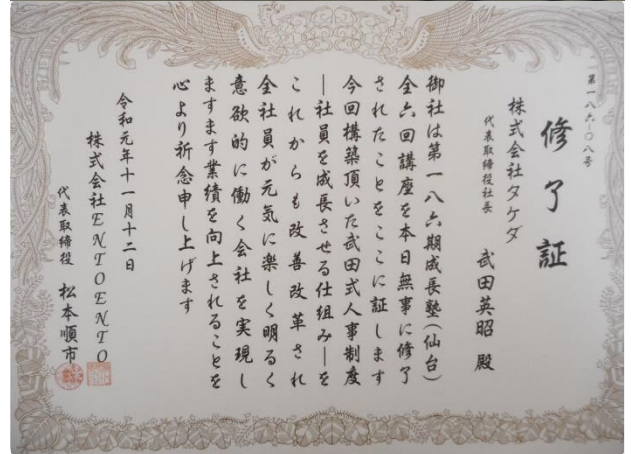 第一八六-〇八号
修了証
株式会社タケダ
代表取締役社長 武田英昭 殿
御社は第一八六期成長塾(仙台)
全六回講座を本日無事に修了
されたことをここに証します
今回構築頂いた武田式人事制度
―社員を成長させる仕組み―を
これからも改善改革され
全社員が元気に楽しく明るく
意欲的に働く会社を実現し
ますます業績を向上されることを
心より祈念申し上げます
令和元年十一月十二日
株式会社ENTOENTO
代表取締役 松本順市